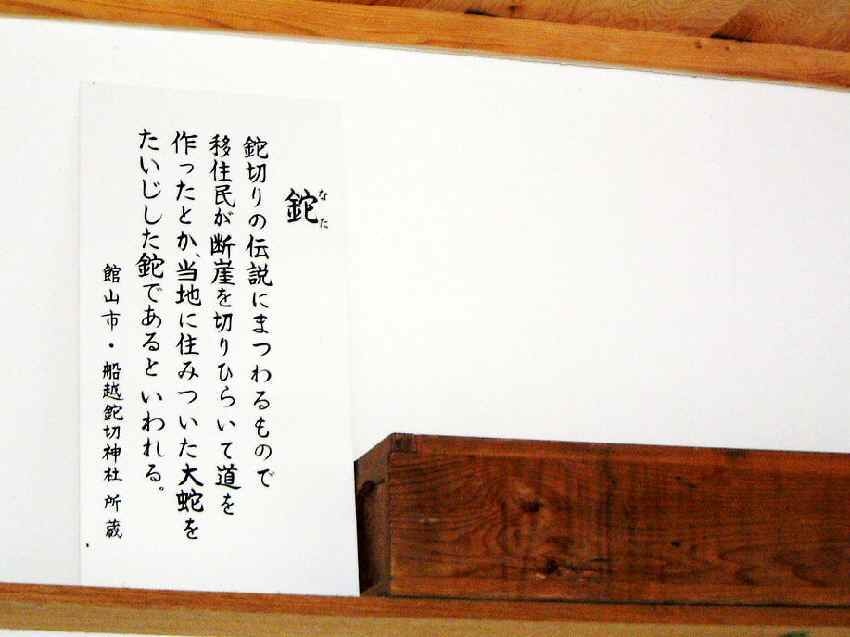 鉈
なた
鉈切りの伝説にまつわるもので
移住民が断崖を切りひらいて道を
作ったとか、当地に住みついた大蛇を
たいじした鉈であるといわれる。
館山市・船越鉈切神社 所蔵